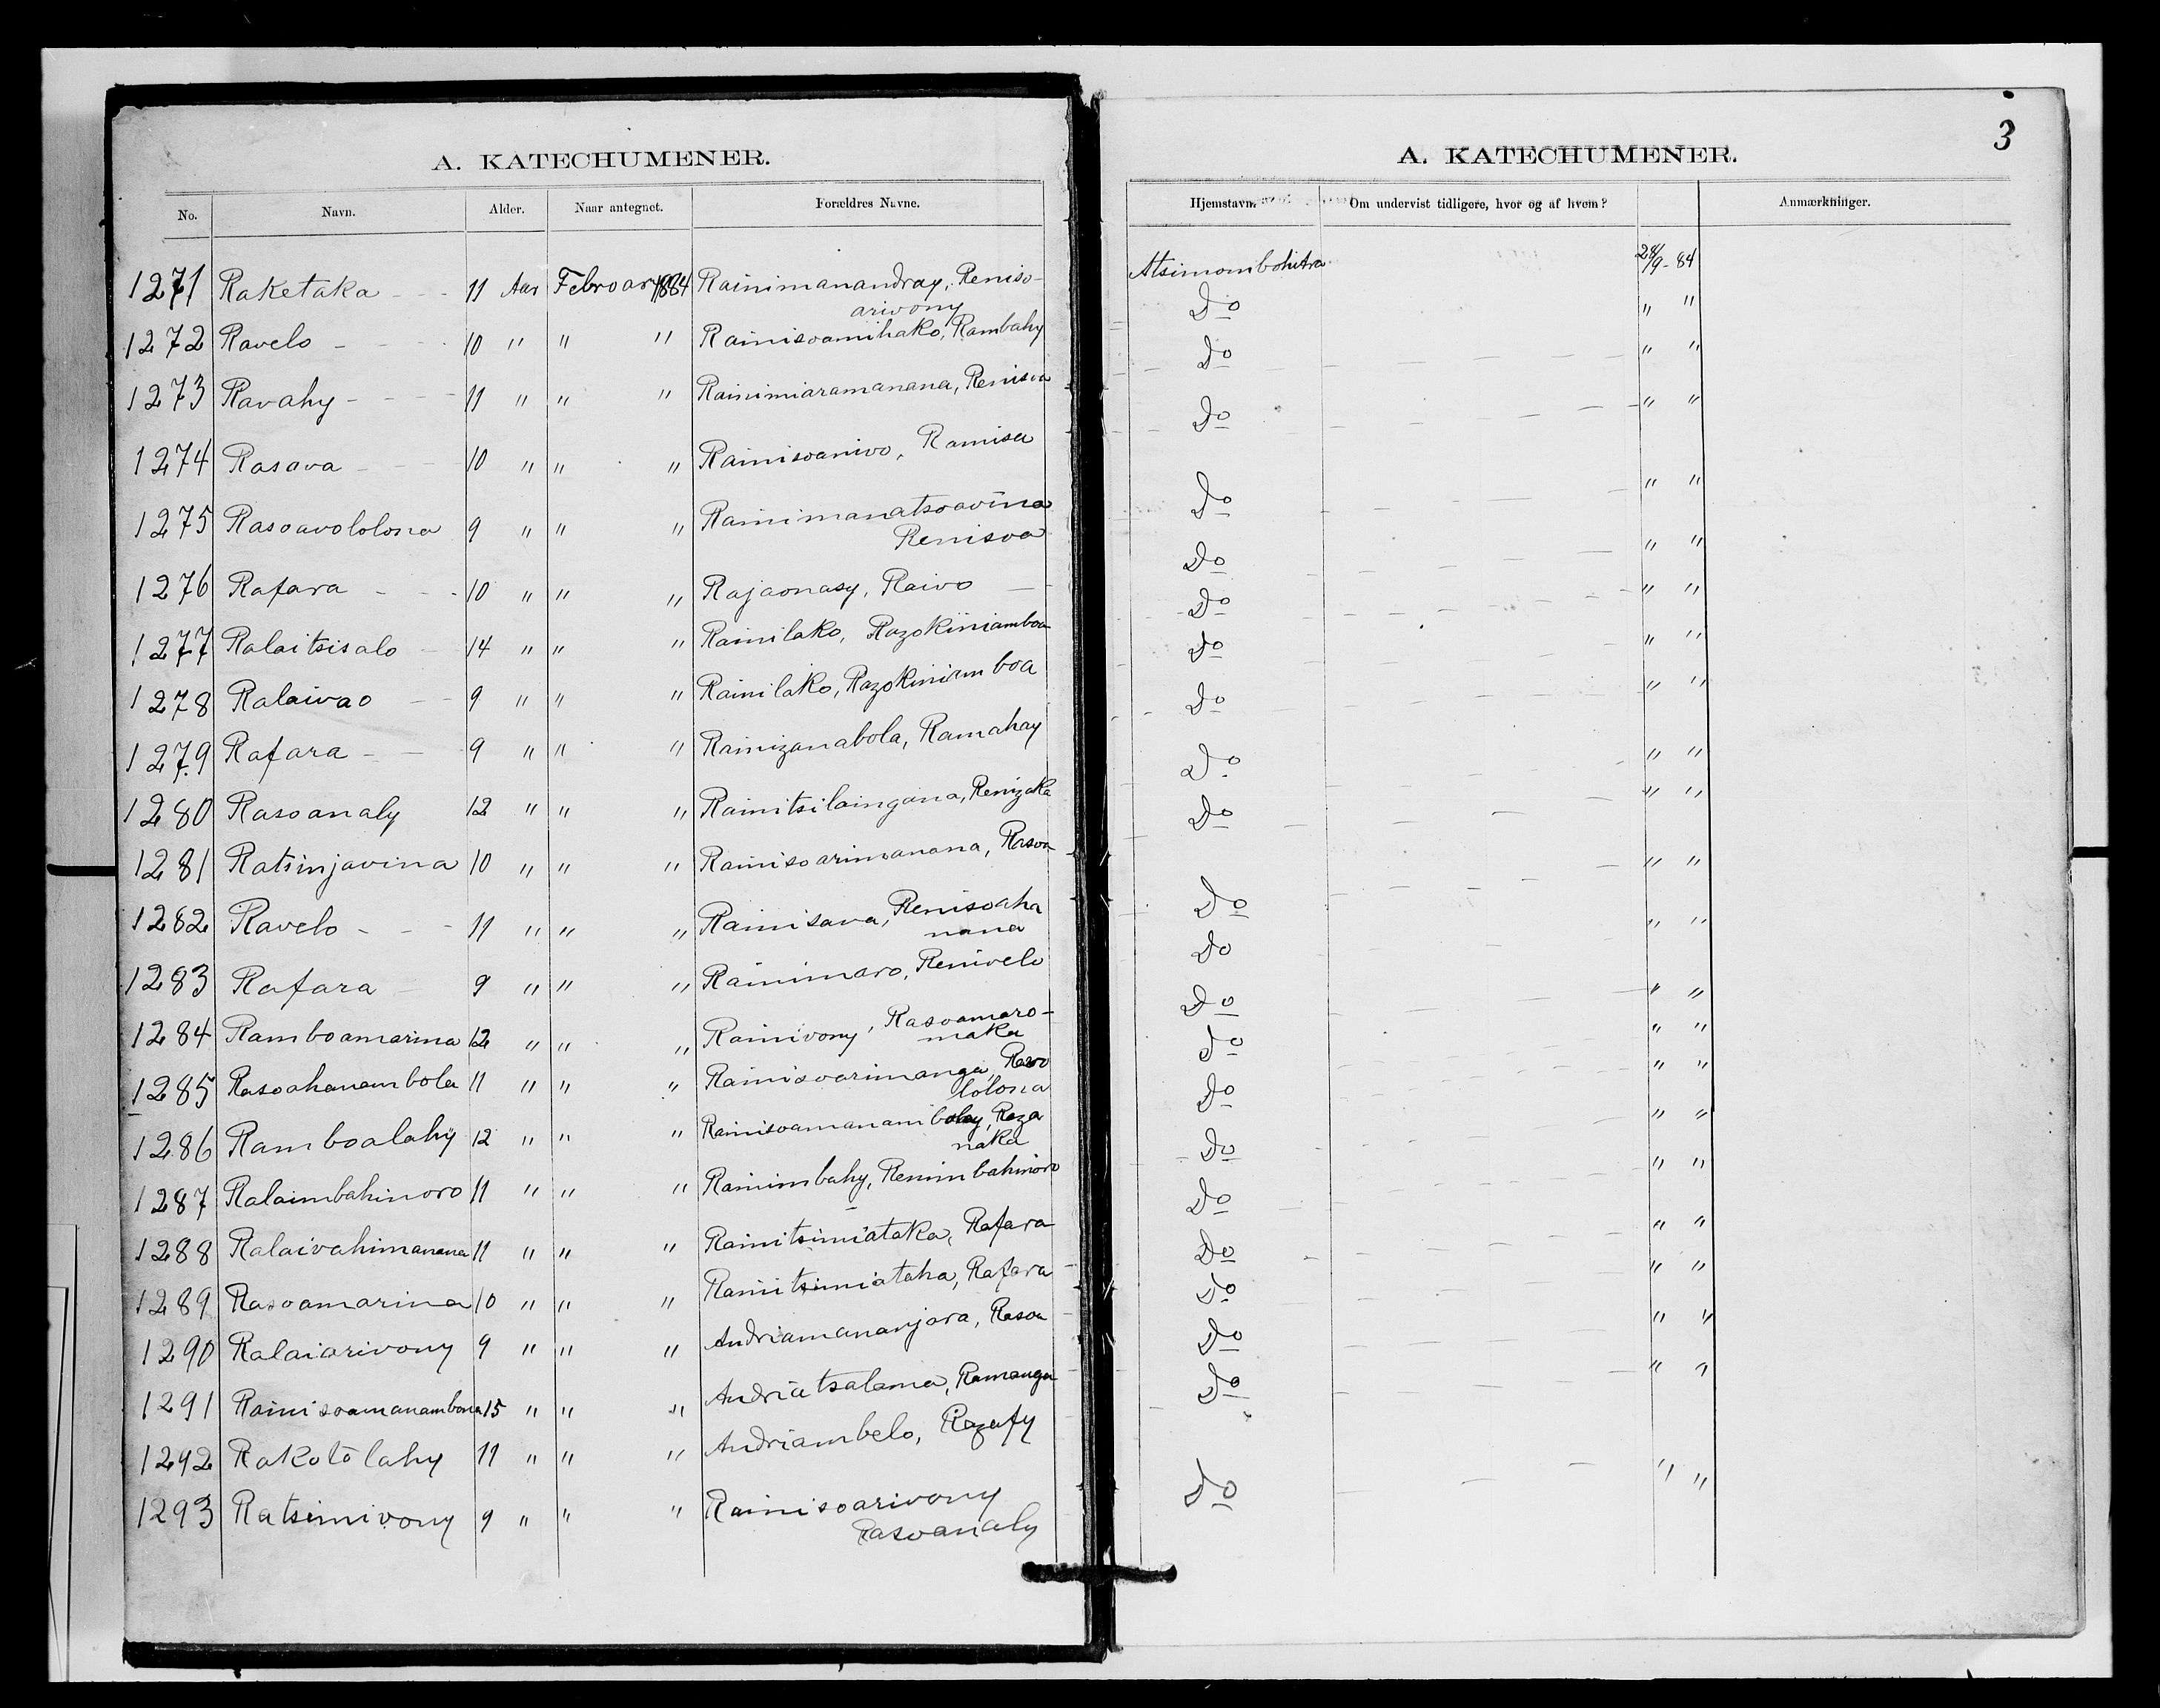 A. KATECHUMENER.
No. Navn. Alder. Naar antegnet. Forældres Navne.
1271 Raketaka - - 11 Aar Februar 1884 Rainimanandray, Reniso-
arivony
1272 Ravelo - - 10 " " " Rainisoamihako, Rambahy
1273 Ravahy - - - 11 " " " Rainimiaramanana, Renisoa
1274 Rasava - - 10 " " " Rainisoanivo, Ramisa
1275 Rasoavololona 9 " " " Rainimanatsoavina
Renisoa
1276 Rafara - - 10 " " " Rajaonasy, Raivo —
1277 Ralaitsisalo - 14 " " " Rainilako, Razokiniamboa
1278 Ralaivao - - 9 " " " Rainilako, Razokiniamboa
1279 Rafara - - 9 " " " Rainizanabola, Ramahay
1280 Rasoanaly 12 " " " Rainitsilaingana, Renizaka
1281 Ratsinjavina 10 " " " Rainisoarimanana, Rasoa
1282 Ravelo - - - 11 " " " Rainisava, Renisoaha
nana
1283 Rafara - 9 " " " Rainimaro, Renivelo
1284 Ramboamarina 12 " " " Rainivony, Rasoamaro-
maka
1285 Rasoahanambola 11 " " " Rainisoarimanga, Ravo
lolona
1286 Ramboalahy 12 " " " Rainisoamanambolay, Raza
naka
1287 Ralaimbahinoro 11 " " " Rainimbahy, Renimbahinoro
1288 Ralaivahimanana 11 " " " Rainitsimiataka, Rafara
1289 Rasoamarina 10 " " " Rainitsimiataha, Rafara
1290 Ralaiarivony 9 " " " Andriamananjara, Rasoa
1291 Rainisoamanambona 15 " " " Andriatsalama, Ramanga
1292 Rakotolahy 11 " " " Andriambelo, Razafy
1293 Ratsimivony 9 " " " Rainisoarivony
Rasoanaly
3
A. KATECHUMENER.
Hjemstavn. Om undervist tidligere, hvor og af hvem? Anmærkninger.
Atsimombohitra 28/9-84
Do " "
Do " "
Do " "
Do " "
Do " "
Do " "
Do " "
Do " "
Do " "
Do " "
Do " "
Do " "
Do " "
Do " "
Do " "
Do " "
Do " "
Do " "
Do " "
Do " "
Do " "
Do " "